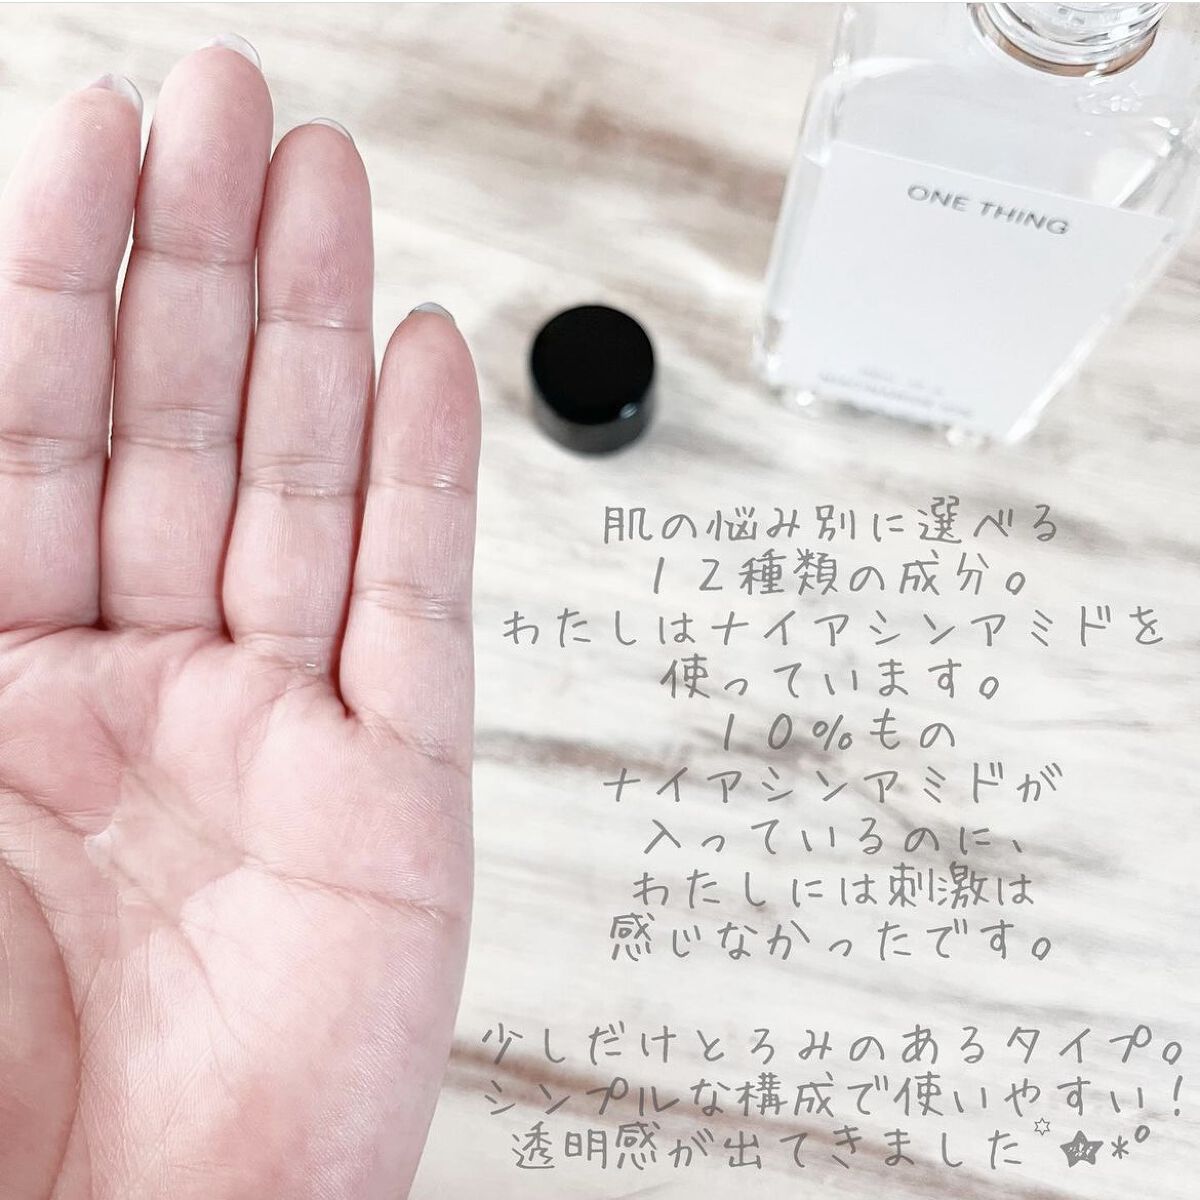 ONE THING
肌の悩み別に選べる
12種類の成分。
わたしはナイアシンアミドを
使っています。
10%もの
ナイアシンアミドが
入っているのに、
わたしには刺激は
感じなかったです。
少しだけとろみのあるタイプ。
シンプルな構成で使いやすい！
透明感が出てきました